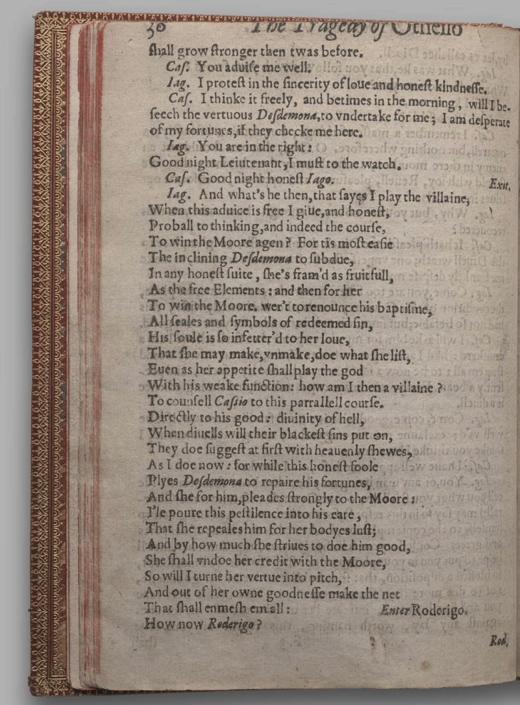 30 The Tragedy of Othello
shall grow stronger then twas before.
Cas. You aduise me well.
Iag. I protest in the sincerity of loue and honest kindnesse.
Cas. I thinke it freely, and betimes in the morning, will I be-
seech the vertuous Desdemona, to vndertake for me; I am desperate
of my fortunes, if they checke me here.
Iag. You are in the right:
Good night Leiutenant, I must to the watch.
Cas. Good night honest Iago. Exit.
Iag. And what's he then, that sayes I play the villaine,
When this aduice is free I giue, and honest,
Proball to thinking, and indeed the course,
To win the Moore agen? For tis most easie
The inclining Desdemona to subdue,
In any honest suite, she's fram'd as fruitfull,
As the free Elements: and then for her
To win the Moore, wer't to renounce his baptisme,
All seales and symbols of redeemed sin,
His soule is so infetter'd to her loue,
That she may make, vnmake, doe what she list,
Euen as her appetite shall play the god
With his weake function: how am I then a villaine?
To counsell Cassio to this parrallell course,
Directly to his good: diuinity of hell,
When diuells will their blackest sins put on,
They doe suggest at first with heauenly shewes,
As I doe now: for while this honest foole
Plyes Desdemona to repaire his fortunes,
And she for him, pleades strongly to the Moore:
I'le poure this pestilence into his eare,
That she repeales him for her bodyes lust;
And by how much she striues to doe him good,
She shall vndoe her credit with the Moore,
So will I turne her vertue into pitch,
And out of her owne goodnesse make the net
That shall enmesh em all: Enter Roderigo.
How now Roderigo?
Rod,